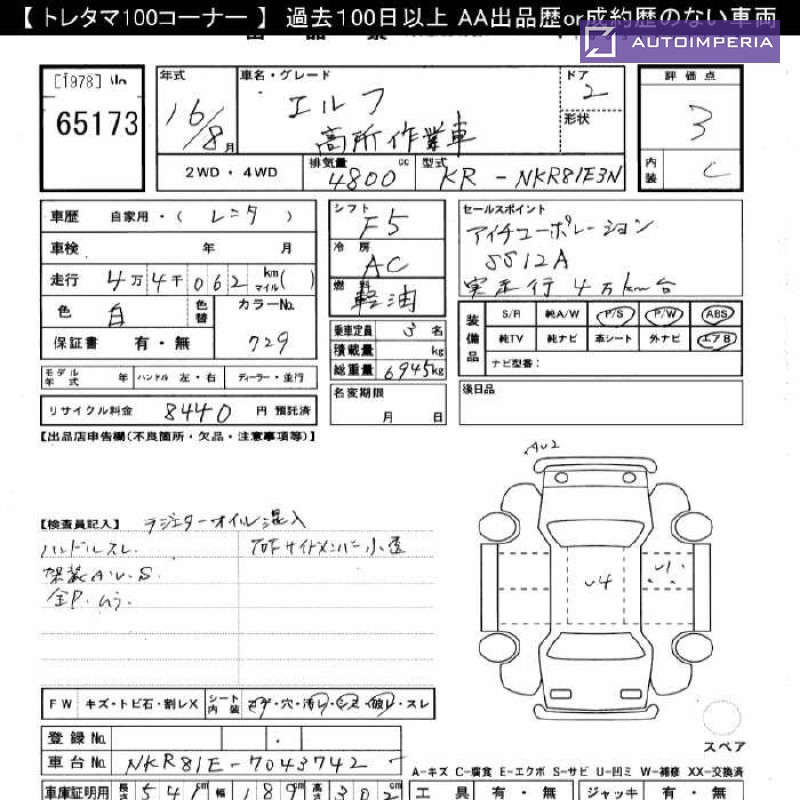 【 トレタマ100コーナー 】 過去100日以上 AA出品歴or成約歴のない車両
AUTOIMPERIA
[1978]
65173
年式 16/8月
車名・グレード エルフ
高所作業車
ドア 2
形状
評価点 3
内装 C
2WD・4WD
排気量 4800 cc
型式 KR-NKR81E3N
車歴 自家用・( レンタ )
車検 年 月
走行 4万4千062 km マイル( )
色 白 色替
カラーNo. 729
保証書 有・無
モデル年式 年 ハンドル 左・右 ディーラー・並行
リサイクル料金 8440 円 預託済
シフト F5
冷房 AC
燃料 軽油
乗車定員 3 名
積載量 kg
総重量 6945kg
名変期限
月 日
セールスポイント
アイチコーポレーション
SS12A
実走行 4万km台
装備品
S/R 純A/W P/S P/W ABS
純TV 純ナビ 革シート 外ナビ エアB
ナビ型番:
後日品
【出品店申告欄(不良箇所・欠品・注意事項等)】
【検査員記入】 ラジエターオイル混入
ハンドルスレ.
架装A.U.S.
全P.ムラ.
AU2
U4
U1
FW キズ・トビ石・割レX シート内装 コゲ・穴・汚レ・シミ・破レ・スレ
登録No.
車台No. NKR81E-7043742
スペア
A-キズ C-腐食 E-エクボ S-サビ U-凹ミ W-補修 XX-交換済
車庫証明用 長さ 541 幅 189 高さ 302 cm
工具 有・無 ジャッキ 有・無